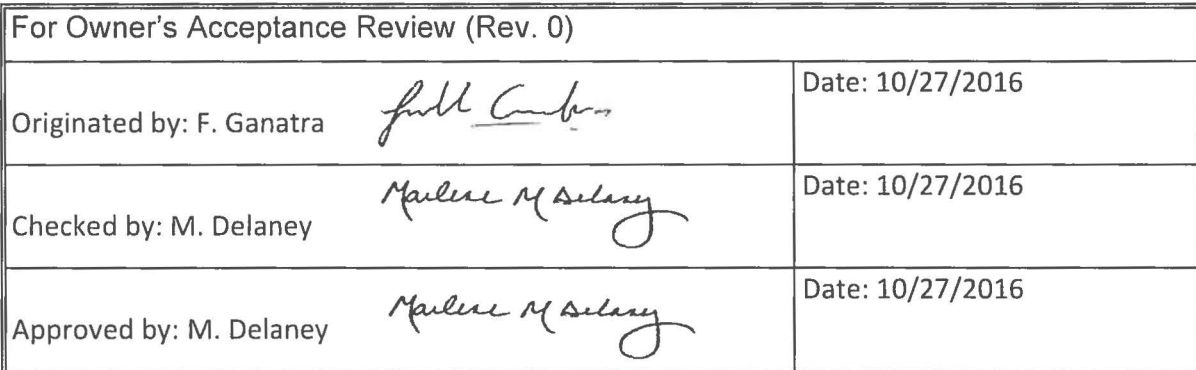 For Owner's Acceptance Review (Rev. 0)
Originated by: F. Ganatra
Date: 10/27/2016
Checked by: M. Delaney Marlene M Delaney
Date: 10/27/2016
Approved by: M. Delaney Marlene M Delaney
Date: 10/27/2016